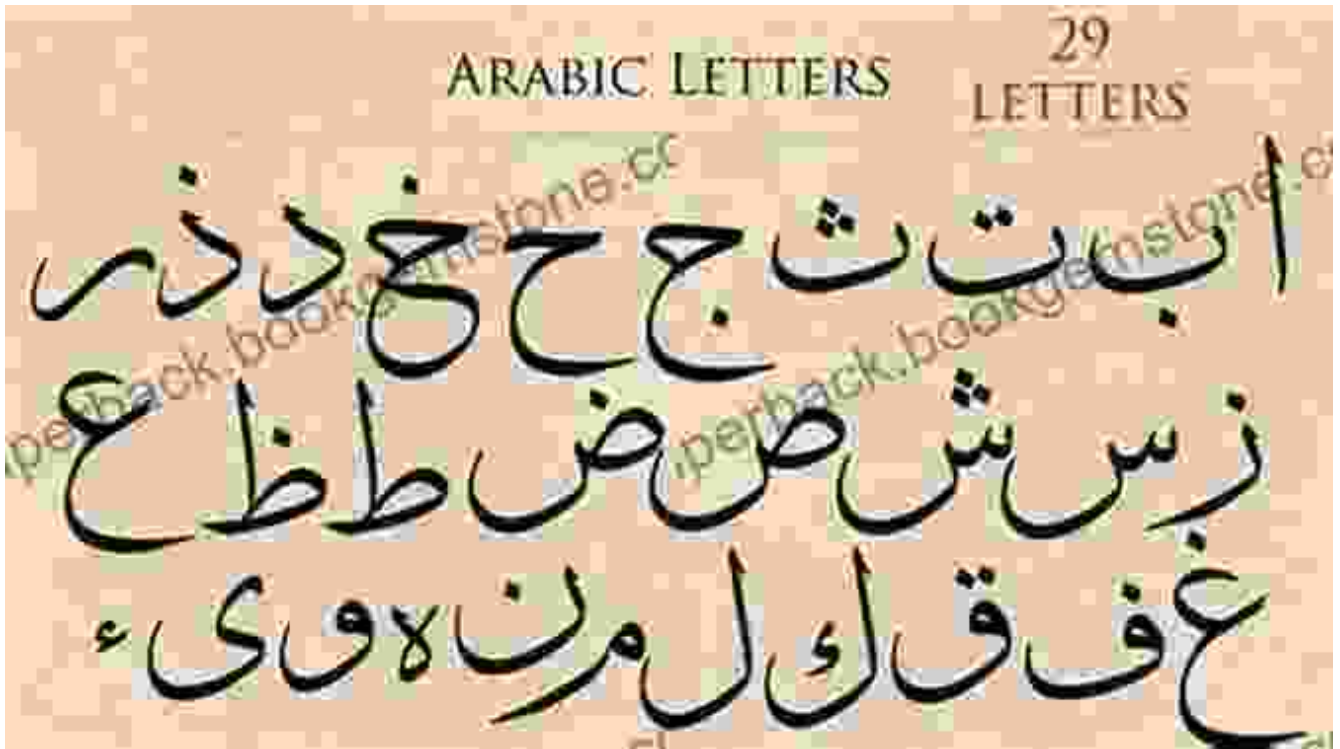 ARABIC LETTERS
29
LETTERS
ا ب ت ث ج ح خ د ذ ر
ز س ش ص ض ط ظ ع
غ ف ق ك ل م ن ه و ى ء
perback.bookgemstone.co
perback.bookgemstone.co